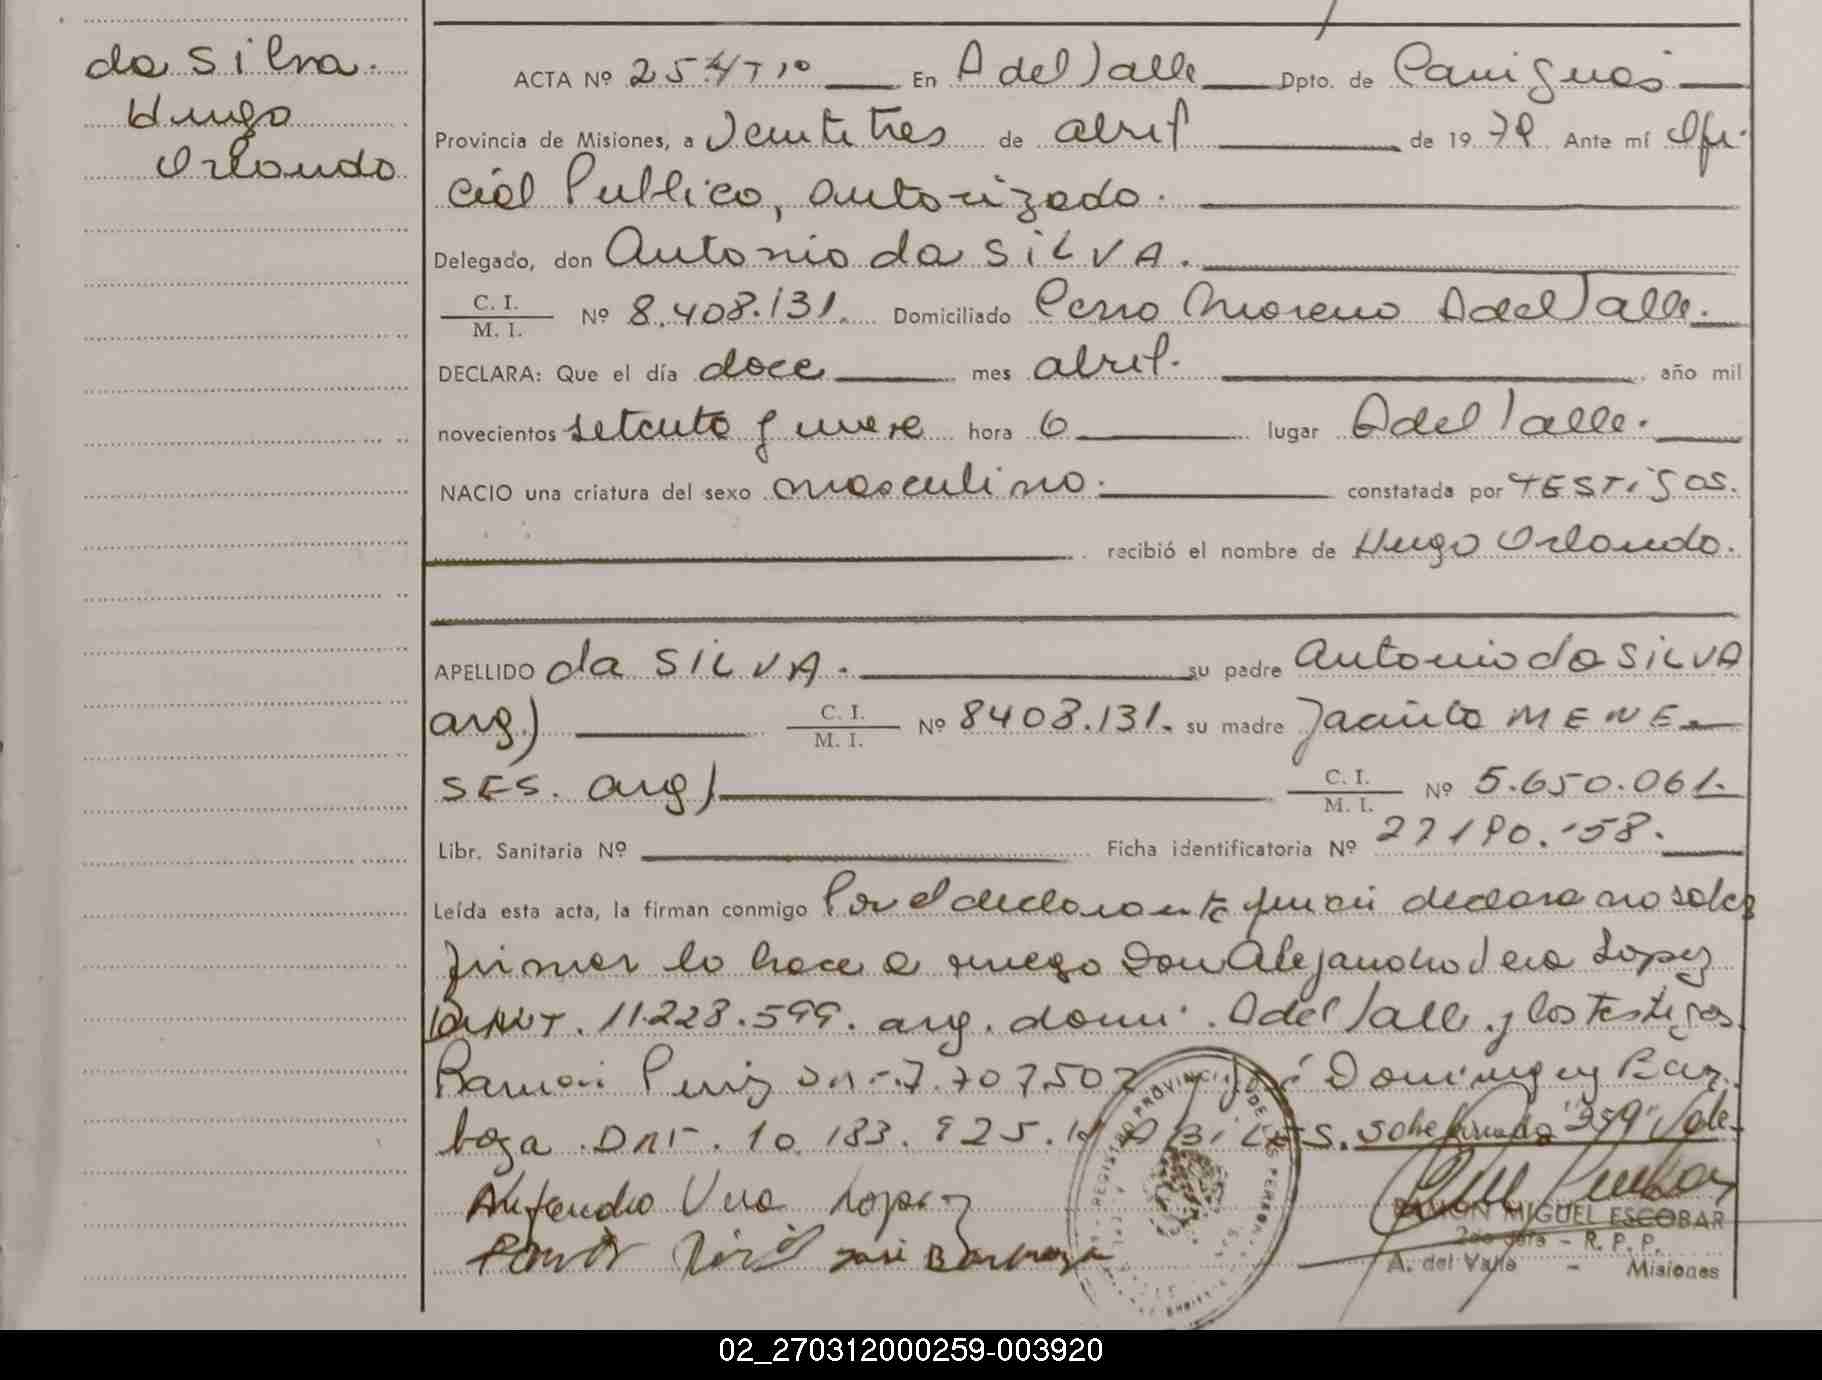 da Silva.
Hugo
Orlando
ACTA Nº 254 Tº En A del Valle Dpto. de Cainguas
Provincia de Misiones, a Veintitres de abril de 1979 Ante mí Ofi-
cial Publico, autorizado.
Delegado, don Antonio da SILVA.
C. I.
M. I. Nº 8.408.131. Domiciliado Cerro Moreno A del Valle.
DECLARA: Que el día doce mes abril. año mil
novecientos setenta y nueve hora 6 lugar A del Valle.
NACIO una criatura del sexo masculino. constatada por TESTIGOS.
recibió el nombre de Hugo Orlando.
APELLIDO da SILVA. su padre Antonio da SILVA
arg) C. I.
M. I. Nº 8408.131. su madre Jacinta MENE
SES. arg) C. I.
M. I. Nº 5.650.061.
Libr. Sanitaria Nº Ficha identificatoria Nº
Leída esta acta, la firman conmigo Por el declarante quien declara no saber
firmar lo hace a ruego Don Alejandro Vera Lopez
11.228.599. arg. domi. A del Valle. y los Testigos
Ramon 7.707.507 José Domingo Bar
boza. DNI. 10.183.925. HABILES. Sobre firmado "259" Vale-
Alejandro Vera Lopez
José Barboza
RAMON MIGUEL ESCOBAR
R. P. P.
A. del Valle - Misiones
02_270312000259-003920